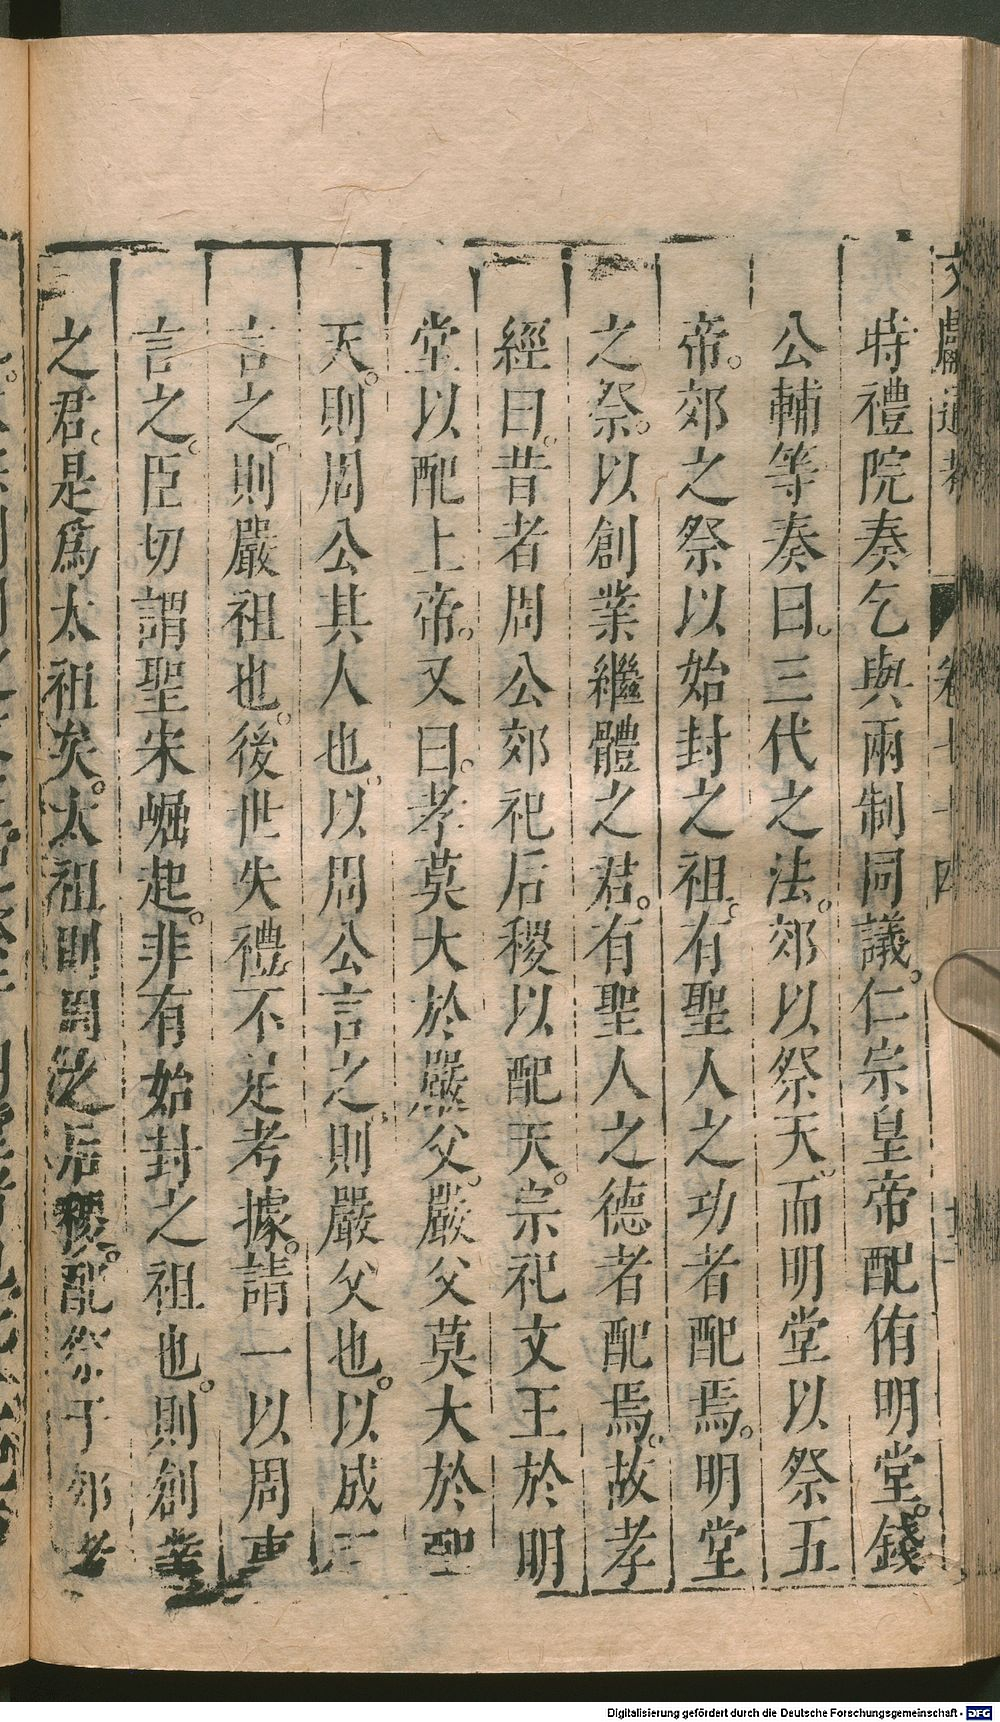 文獻通考 卷七十四
時禮院奏乞與兩制同議。仁宗皇帝配侑明堂。錢
公輔等奏曰。三代之法。郊以祭天。而明堂以祭五
帝。郊之祭以始封之祖。有聖人之功者配焉。明堂
之祭。以創業繼體之君。有聖人之德者配焉。故孝
經曰。昔者周公郊祀后稷以配天。宗祀文王於明
堂以配上帝。又曰。孝莫大於嚴父。嚴父莫大於配
天。則周公其人也。以周公言之。則嚴父也。以成王
言之。則嚴祖也。後世失禮。不足考據。請一以周事
言之。臣切謂聖宋崛起。非有始封之祖也。則創業
之君。是爲太祖矣。太祖則周之后稷。配祭于郊者
Digitalisierung gefördert durch die Deutsche Forschungsgemeinschaft - DFG